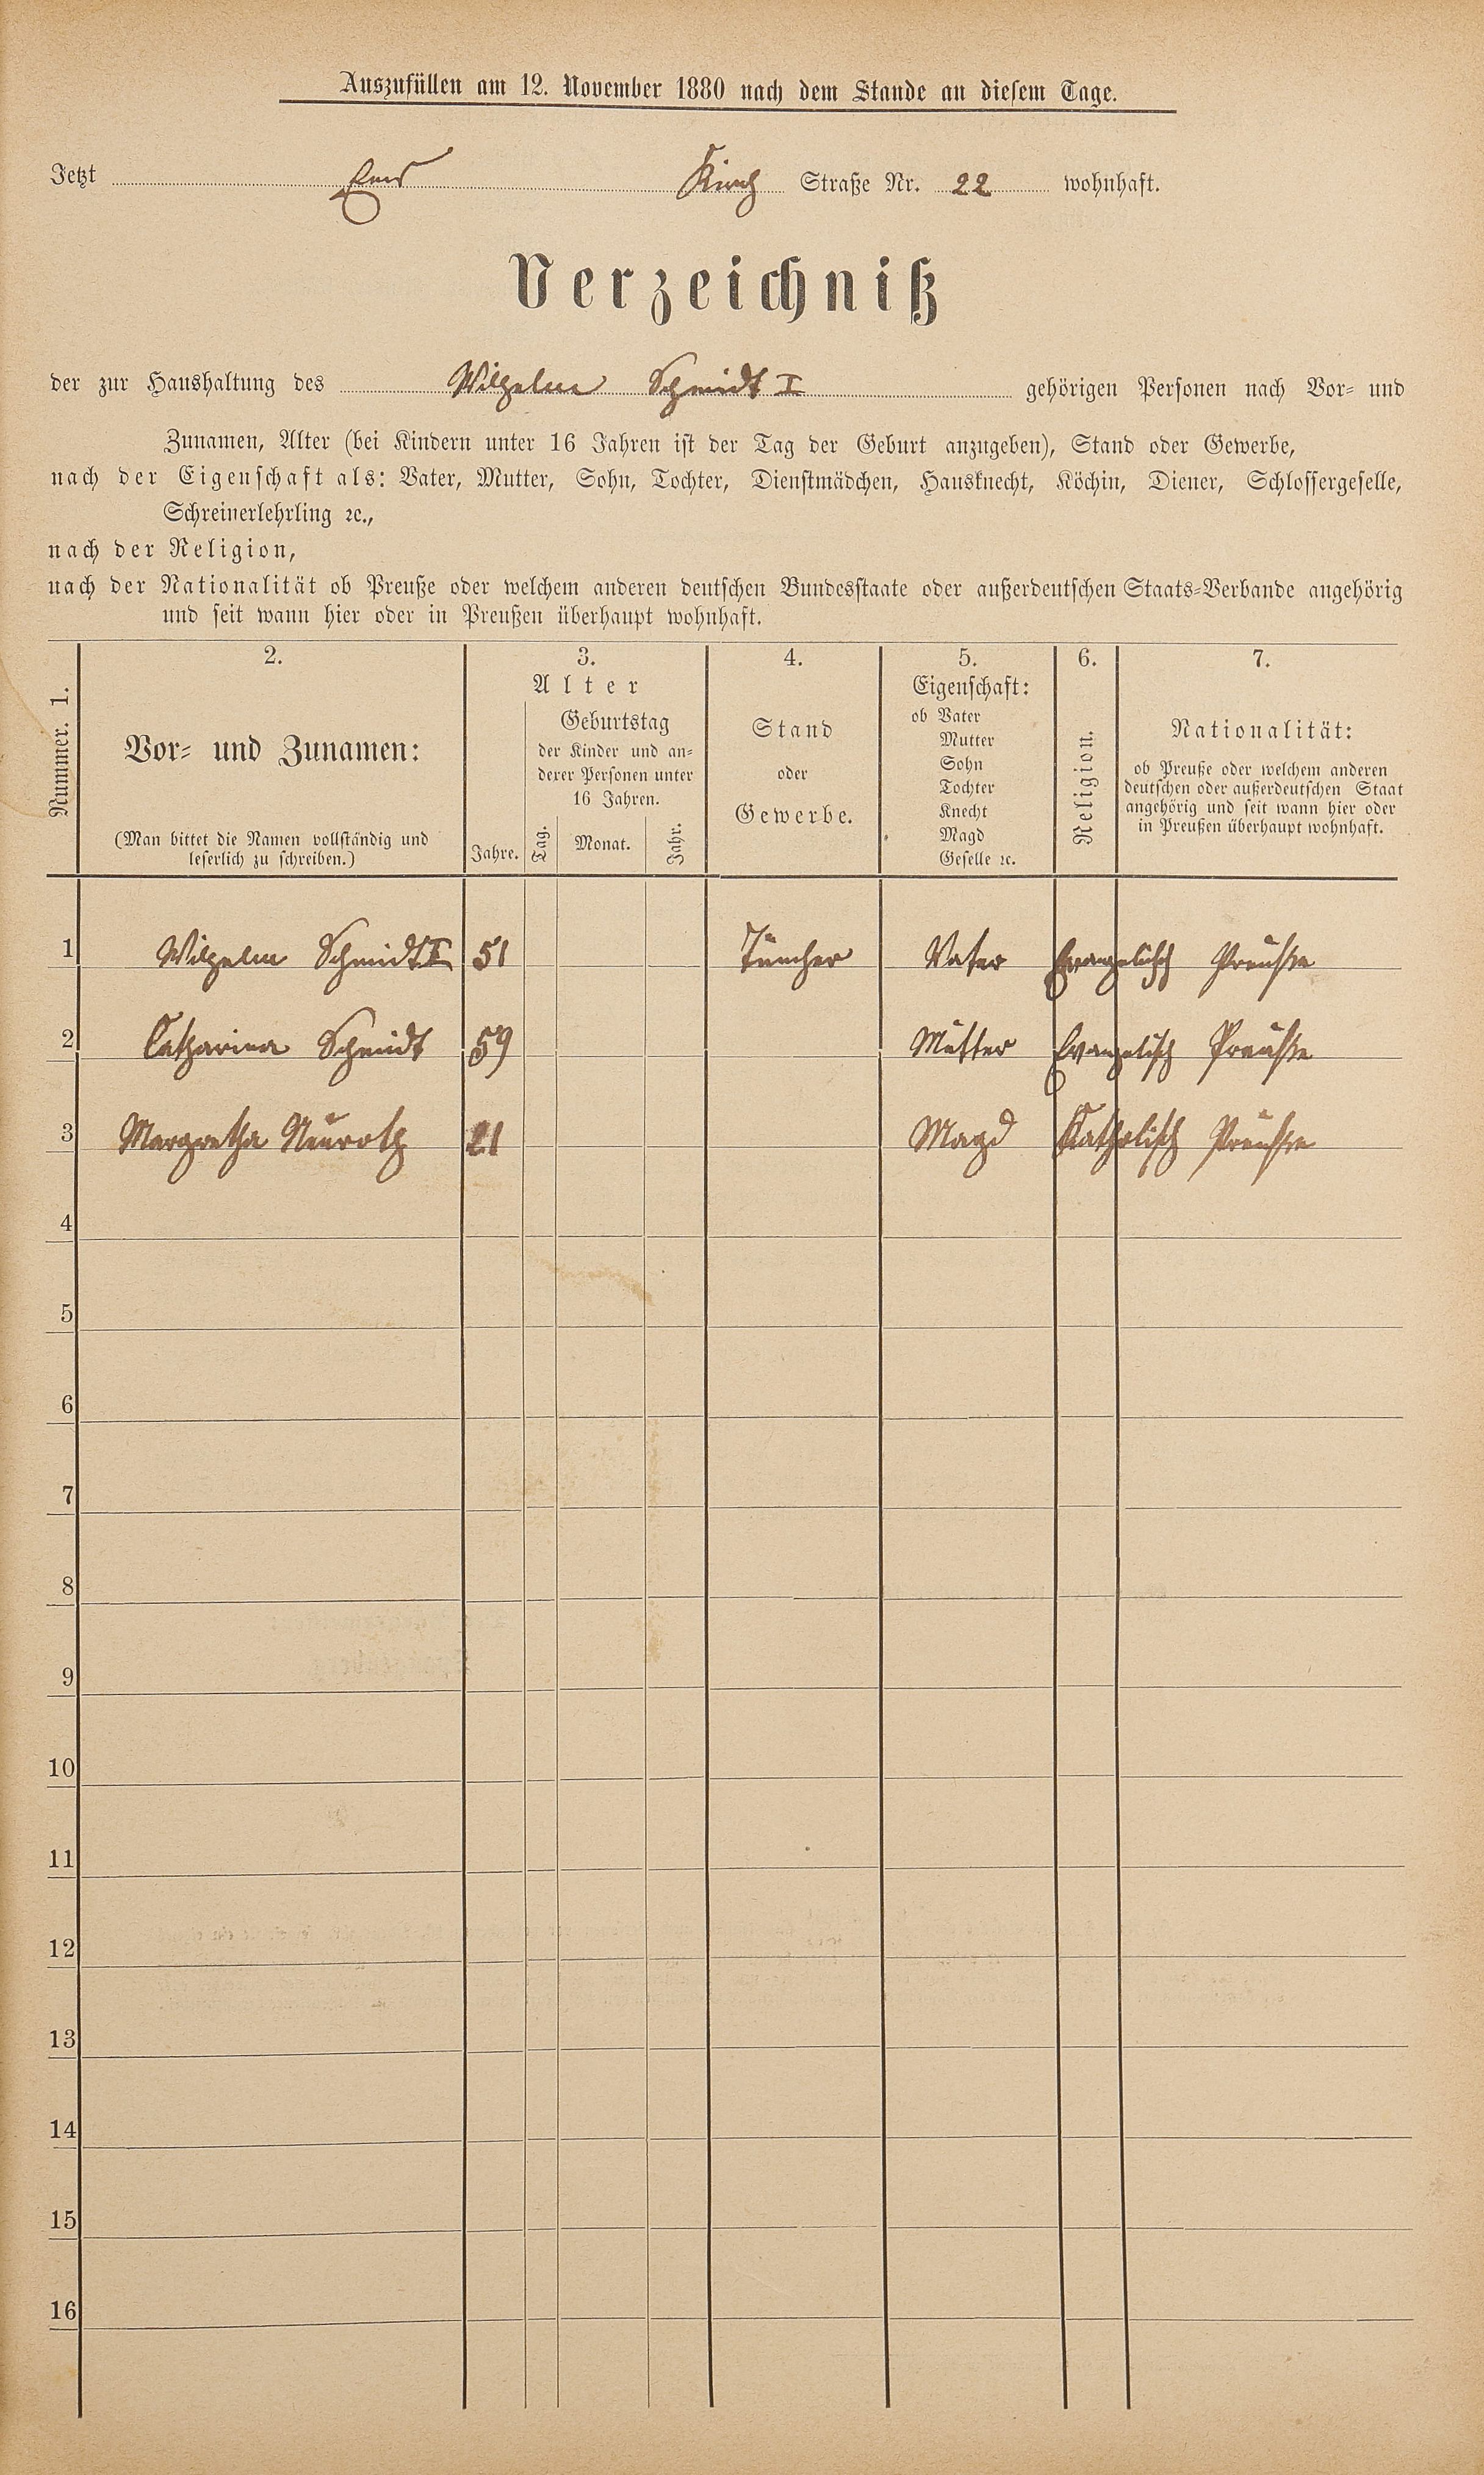 Auszufüllen am 12. November 1880 nach dem Stande an diesem Tage.
Jetzt Ems Kirch Straße Nr. 22 wohnhaft.
Verzeichniß
der zur Haushaltung des Wilhelm Schmidt I gehörigen Personen nach Vor- und
Zunamen, Alter (bei Kindern unter 16 Jahren ist der Tag der Geburt anzugeben), Stand oder Gewerbe,
nach der Eigenschaft als: Vater, Mutter, Sohn, Tochter, Dienstmädchen, Hausknecht, Köchin, Diener, Schlossergeselle,
Schreinerlehrling ꝛc.,
nach der Religion,
nach der Nationalität ob Preuße oder welchem anderen deutschen Bundesstaate oder außerdeutschen Staats-Verbande angehörig
und seit wann hier oder in Preußen überhaupt wohnhaft.
Nummer. 1.
2.
Vor- und Zunamen:
(Man bittet die Namen vollständig und
leserlich zu schreiben.)
3.
Alter
Jahre.
Geburtstag
der Kinder und an-
derer Personen unter
16 Jahren.
Tag. Monat. Jahr.
4.
Stand
oder
Gewerbe.
5.
Eigenschaft:
ob Vater
Mutter
Sohn
Tochter
Knecht
Magd
Geselle ꝛc.
6.
Religion.
7.
Nationalität:
ob Preuße oder welchem anderen
deutschen oder außerdeutschen Staat
angehörig und seit wann hier oder
in Preußen überhaupt wohnhaft.
1 Wilhelm Schmidt I 51 Tüncher Vater Evangelisch Preuße
2 Catharina Schmidt 59 Mutter Evangelisch Preuße
3 Margretha Neuroth 21 Magd Katholisch Preuße
4
5
6
7
8
9
10
11
12
13
14
15
16